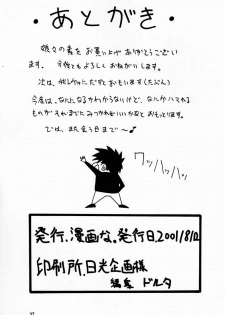 ・あとがき・
娘々の素をお買い上げありがとうござい
ます。今後ともよろしくおねがいします。
次は、忙しかったですとおもいます(たぶん)
今度は、なんになるかわからないけど、なにかハマれる
ものがそれまでにみつかればいいかなとおもっとります。
では、また会う日まで〜♪
ワッハッハッ
発行、漫画な。発行日、2001/8/12
印刷所、日光企画様
編集 ドルタ